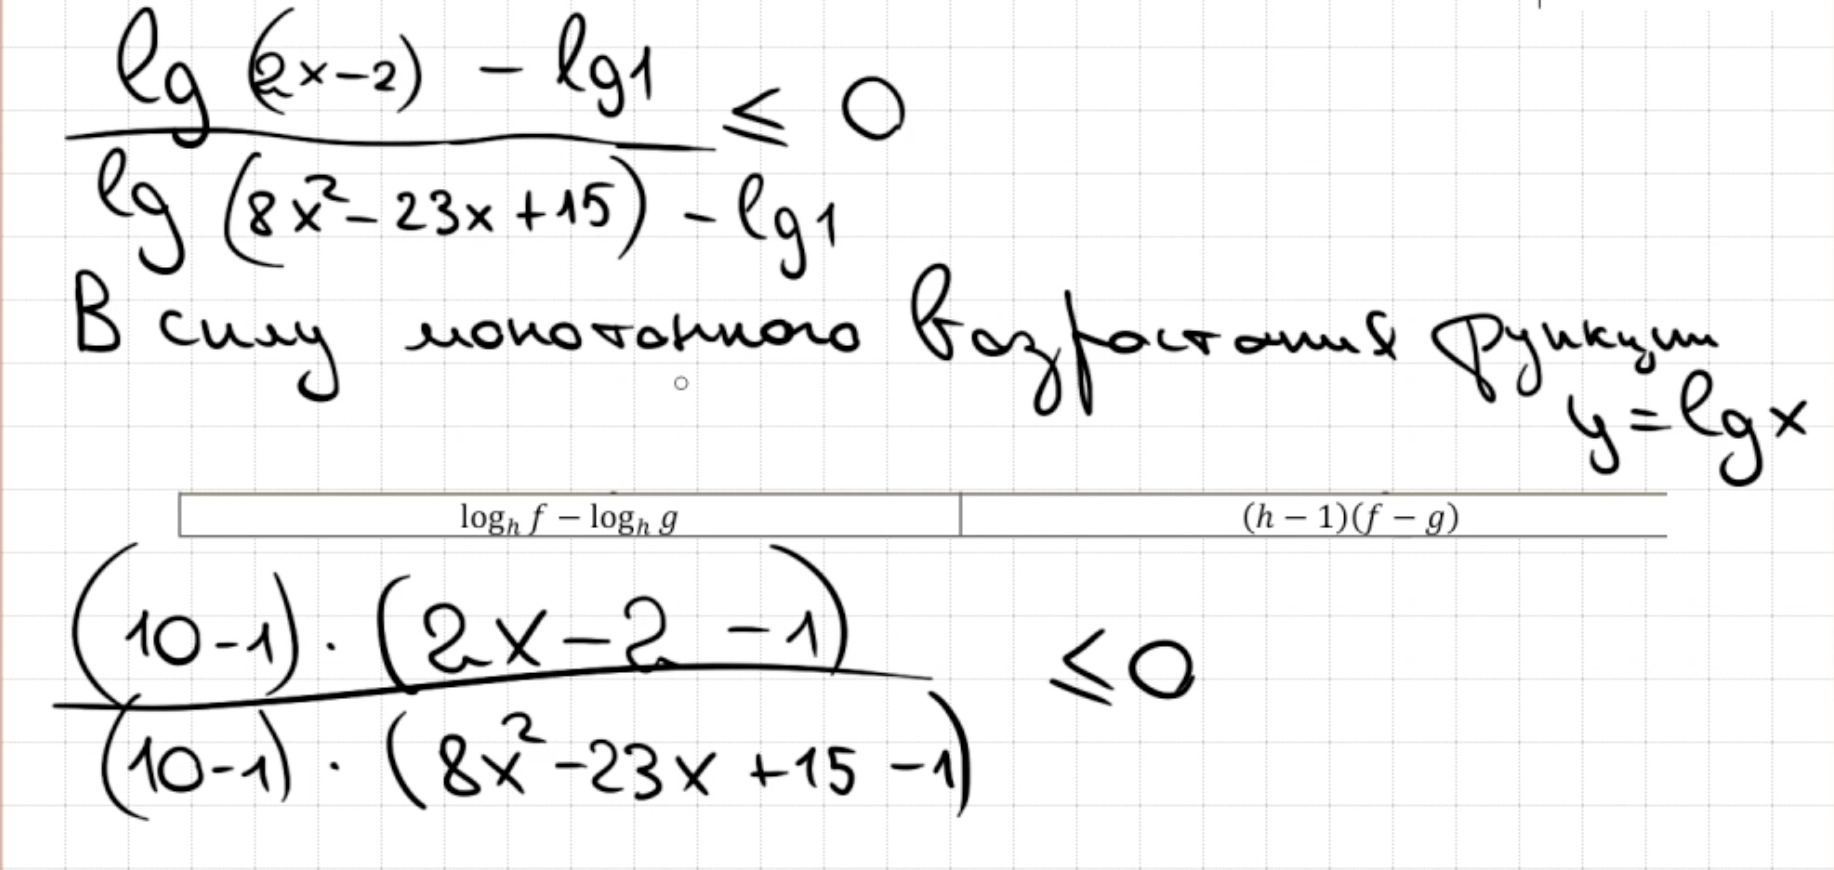 lg (2x-2) - lg1
≤ 0
lg (8x² - 23x + 15) - lg1
В силу монотонного возрастания функции
y = lg x
logₕ f − logₕ g (h − 1)(f − g)
(10-1) · (2x-2-1)
≤ 0
(10-1) · (8x²-23x+15-1)